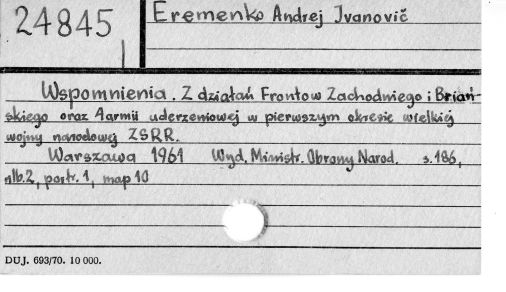 24845
Eremenko Andrej Ivanovič
Wspomnienia. Z działań Frontow Zachodniego i Briań-
skiego oraz 4armii uderzeniowej w pierwszym okresie wielkiej
wojny narodowej ZSRR.
Warszawa 1961 Wyd. Ministr. Obrony Narod. s. 186,
nlb.2, portr. 1, map 10
DUJ. 693/70. 10 000.